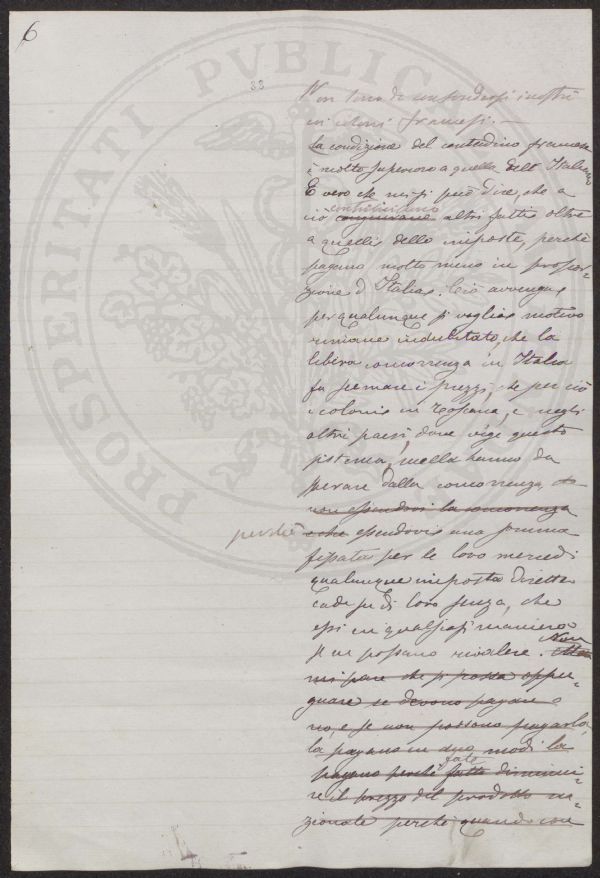 6
33
PROSPERITATI PVBLICAE
Non sono da confondersi i nostri
coi coloni francesi. —
La condizione del contadino francese
è molto superiore a quella dell' Italiano
È vero che mi si può dire, che a
contribuiscono
ciò altri fatti oltre
a quelli delle imposte, perchè
pagano molto meno in propor-
zione d'Italia. Ciò avvenga
per qualunque si voglia motivo
rimane indubitato, che la
libera concorrenza in Italia
fa scemare i prezzi, che per ciò
i coloni in Toscana, e negli
altri paesi dove vige questo
sistema, nulla hanno da
sperare dalla concorrenza
non essendovi la concorrenza
perchè
e che essendovi una somma
fissata per le loro mercedi
qualunque imposta diretta
cade su di loro senza, che
essi in qualsiasi maniera
se ne possano rivalere. Non
mi pare che si possa oppu-
gnare se devono pagare
no, e se non possono pagarla,
la pagano in due modi la
fate
pagano perchè fatte diminui-
re il prezzo del prodotto na-
zionale perchè quando con